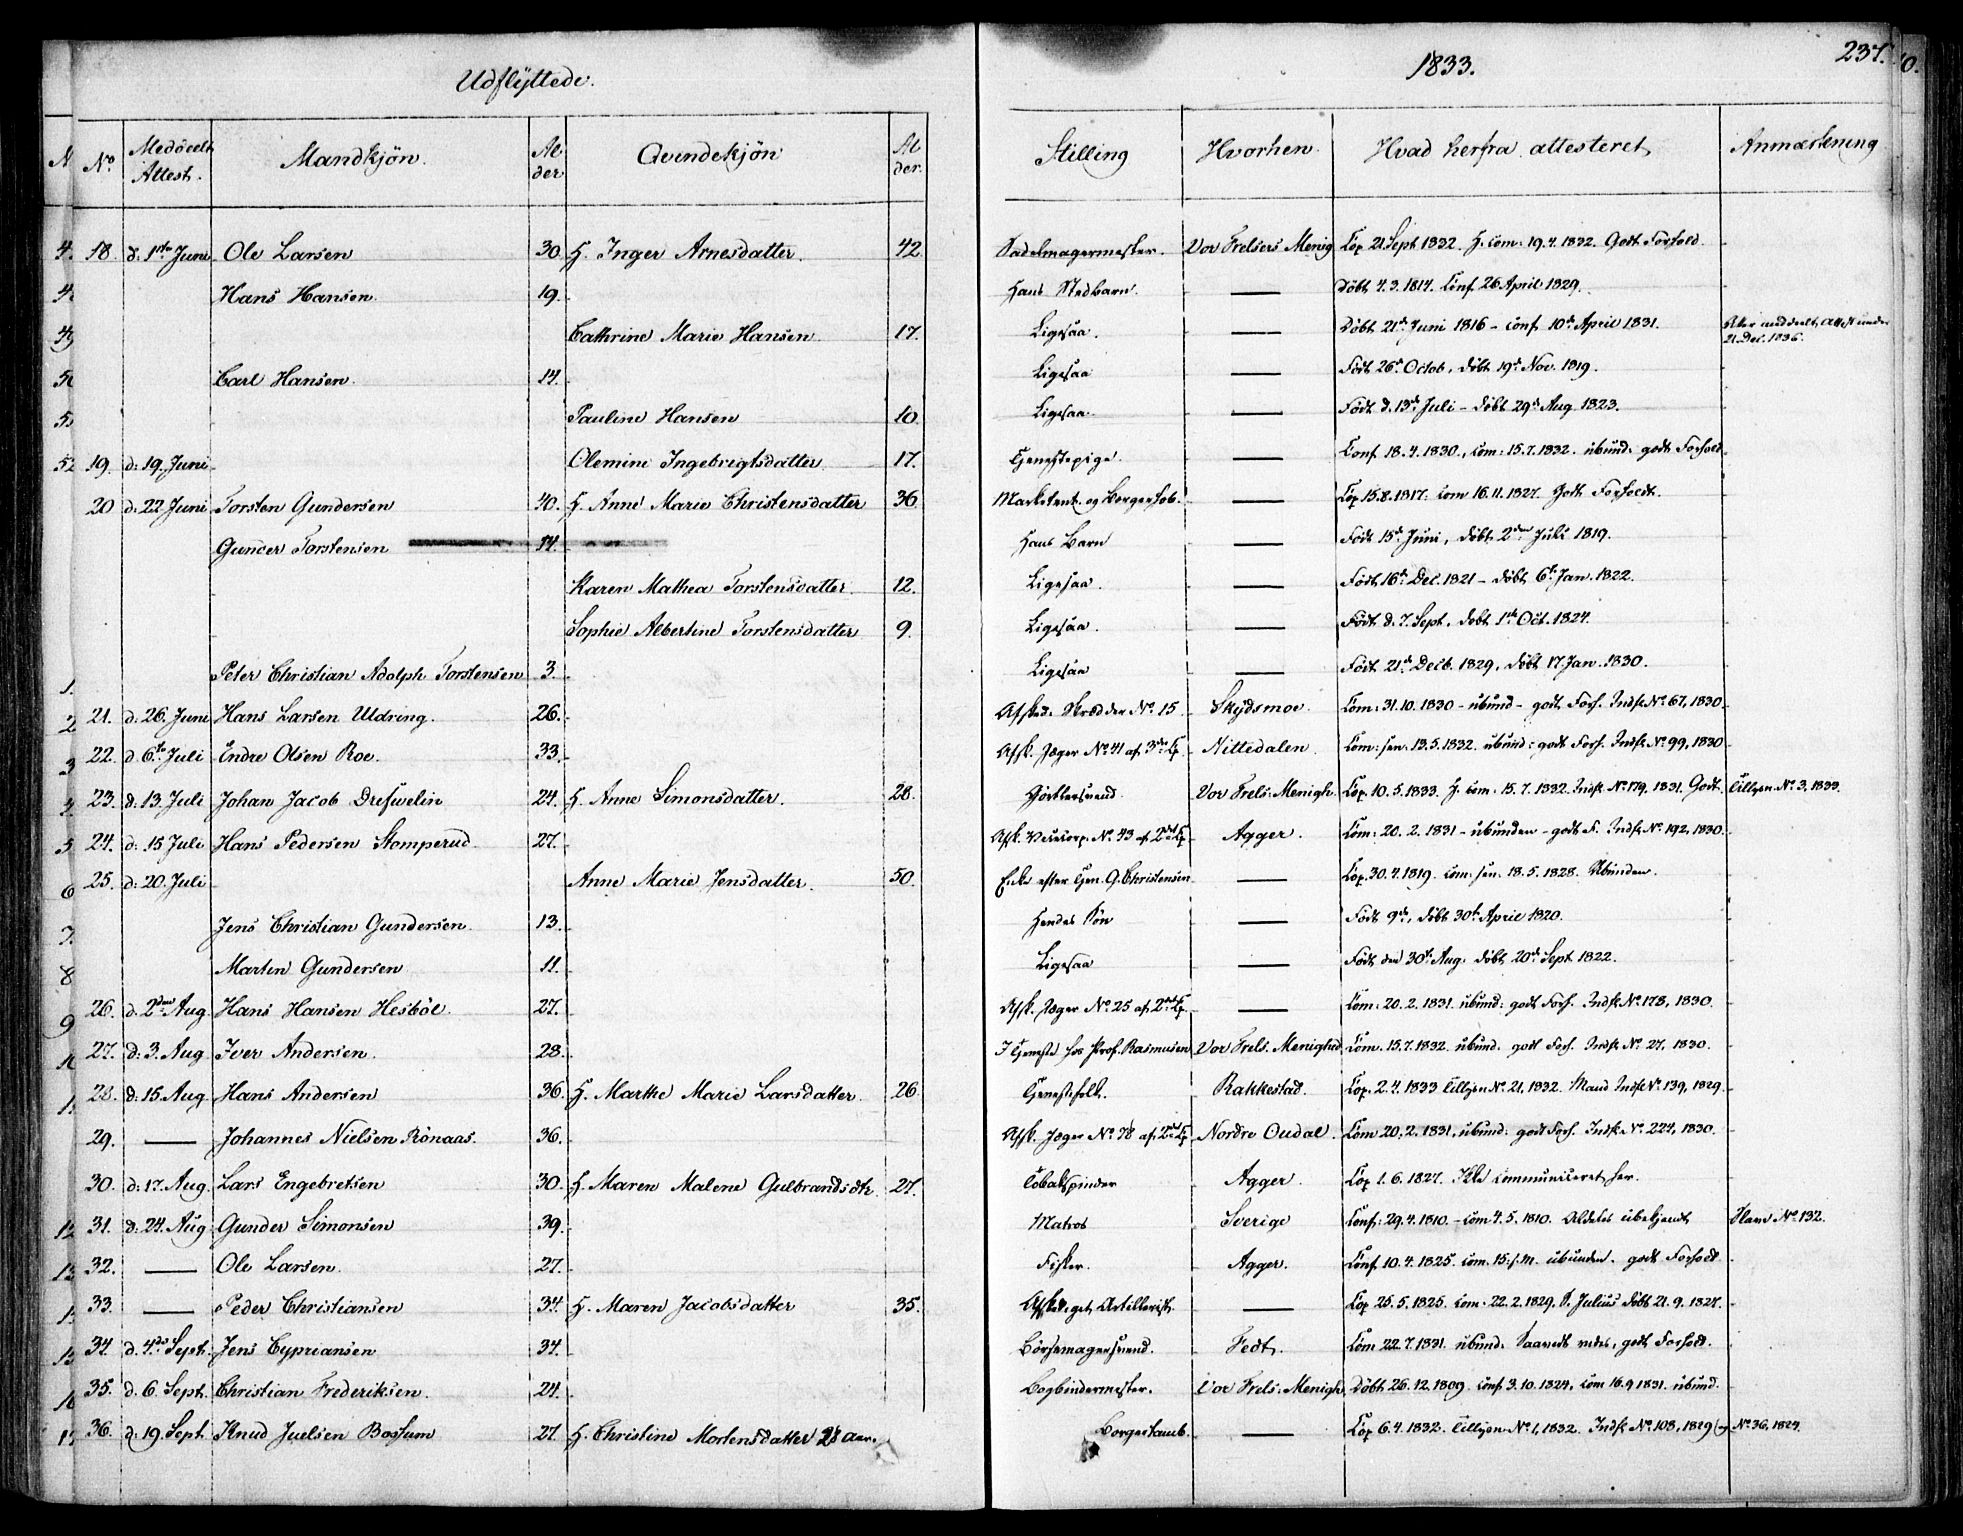 Udflÿttede.
1833.
237.
No. Meddeelt Attest. Mandkjön. Alder Qvindekjön Alder. Stilling Hvorhen. Hvad herfra attesteret, Anmærkning
18. d: 1ste Juni Ole Larsen 30. H. Inger Arnesdatter. 42 Sadelmagermester. Vor Frelsers Menig Cop 21 Sept 1832. H. com: 19.4.1832. Godt Forhold.
Hans Hansen. 19. Hans Stedbarn. — Döbt 4.3.1814. Conf. 26 April 1829.
Cathrine Marie Hansen 17. Ligesaa. — Döbt 21de Juni 1816 – conf. 10de April 1831. Ater meddeelt Attest under 21 Dec. 1836.
Carl Hansen. 14. Ligesaa — Födt 26de Octob, döbt 19de Nov. 1819.
Pauline Hansen 10. Ligesaa. — Födt d. 13de Juli – döbt 29de Aug 1823.
19. d: 19. Juni Olemine Ingebrigtsdatter 17. Tjenestepige. — Conf. 18.4.1830., com: 15.7.1832. ubund: godt Forhold
20 d: 22 Juni Torsten Gundersen 40. H. Anne Marie Christensdatter 36 Marketent. og Borgersob. — Cop 15.8.1817. com 16.11.1827. Godt Forhold.
Gunder Torstensen 14. Hans Barn — Födt 15de Juni, döbt 2den Juli 1819.
Karen Mathea Torstensdatter 12. Ligesaa. — Födt 16de Dec. 1821 – döbt 6te Jan. 1822.
Sophie Albertine Torstensdatter 9. Ligesaa. — Födt d. 7. Sept. döbt 1ste Oct. 1824.
Peter Christian Adolph Torstensen 3. Ligesaa — Födt 21de Decb. 1829, döbt 17 Jan. 1830.
21. d: 26. Juni Hans Larsen Uldring. 26. Afsked. Skrædder No. 15 Skÿdsmoe. Com: 31.10.1830 – ubund – godt Forh. Indk No. 67, 1830
22. d 6te Juli Endre Olsen Roe. 33. Afsk. Jæger No. 41 af 3die Cp. Nittedalen. Com: sen. 13.5.1832. ubund: godt Forh. Indk. No. 99, 1830
23. d: 13. Juli Johan Jacob Drefwelin 24. H. Anne Simonsdatter. 28. Gjörtlersvend. Vor Frels: Menigh. Cop. 10.5.1833. H. com: 15.7.1832. Indk No. 179. 1831. Godt. Tillysn. No. 3. 1833.
24. d: 15 Juli Hans Pedersen Stomperud. 27. Afsk. Vicecorp. No. 43 af 2det Cp. Agger. Com: 20.2.1831 – ubunden – godt F. Indk No. 192, 1830.
25. d: 20. Juli Anne Marie Jensdatter. 50. Enke efter Gun. G. Christensen — Cop. 30.4.1819. com: sen: 18.5.1828. Ubunden.
Jens Christian Gundersen. 13. Hendes Sön — Födt 9de, döbt 30te April 1820.
Martin Gundersen 11. Ligesaa — Födt den 30te Aug. döbt 20de Sept 1822.
26. d. 2den Aug. Hans Hansen Hesböe. 27. Afsk. Jæger No. 25 af 2det Cp. — Com: 20.2.1831. ubund: godt Forh. Indk No. 178, 1830.
27. d: 3. Aug. Iver Andersen. 28. I Tjeneste hos Prof. Rasmusen Vor Frels. Menighed Com. 15.7.1832. ubund. godt Forh. Indk No. 27. 1830.
28. d: 15. Aug Hans Andersen 36. H. Marthe Marie Larsdatter. 26 Tjenestefolk. Rakkestad. Cop. 2.4.1833 Tillysn No. 21, 1832. Mand Indk No. 139, 1829.
29. — Johannes Nielsen Rönaas. 36. Afsk. Jæger No. 78 af 2det Cp Nordre Oudal. Com 20.2.1831, ubund: godt Forh. Indk No. 224, 1830.
30. d: 17. Aug. Lars Engebretsen 30. H. Maren Malene Gulbrandsdtr. 27. Tobakspinder Agger. Cop 1.6.1827. Ikke communiceret her.
31. d: 24. Aug Gunder Simonsen 39. Matros Sverige Conf: 29.4.1810. – com 4.5.1810. Aldeles ubekjendt Slave No. 132.
32. — Ole Larsen. 27. Fisker. Agger. Conf. 10.4.1825. com. 15. f.M. ubunden. godt Forhold
33. — Peder Christiansen 34 H. Maren Jacobsdatter 35. Afskediget Artillerist. — Cop 25.5.1825. com: 22.2.1829. S. Julius döbt 21.9.1827.
34. d. 4de Sept. Jens Cyprianssen 34. Börsemagersvend. Fedt. Com 22.7.1831. ubund. Saavidt vides, godt Forhold.
35. d. 6. Sept. Christian Frederiksen. 24. Bogbindermester. Vor Frels. Menigh Döbt 26.12.1809. conf. 3.10.1824, com 16.9.1831. ubund.
36. d: 19. Sept. Knud Juelsen Bossum 27. H. Christine Mortensdatter 28 Aar. Borgertamb. — Cop 6.4.1832. Tillysn No. 1, 1832. Indk No. 108, 1829 og No. 36, 1827.